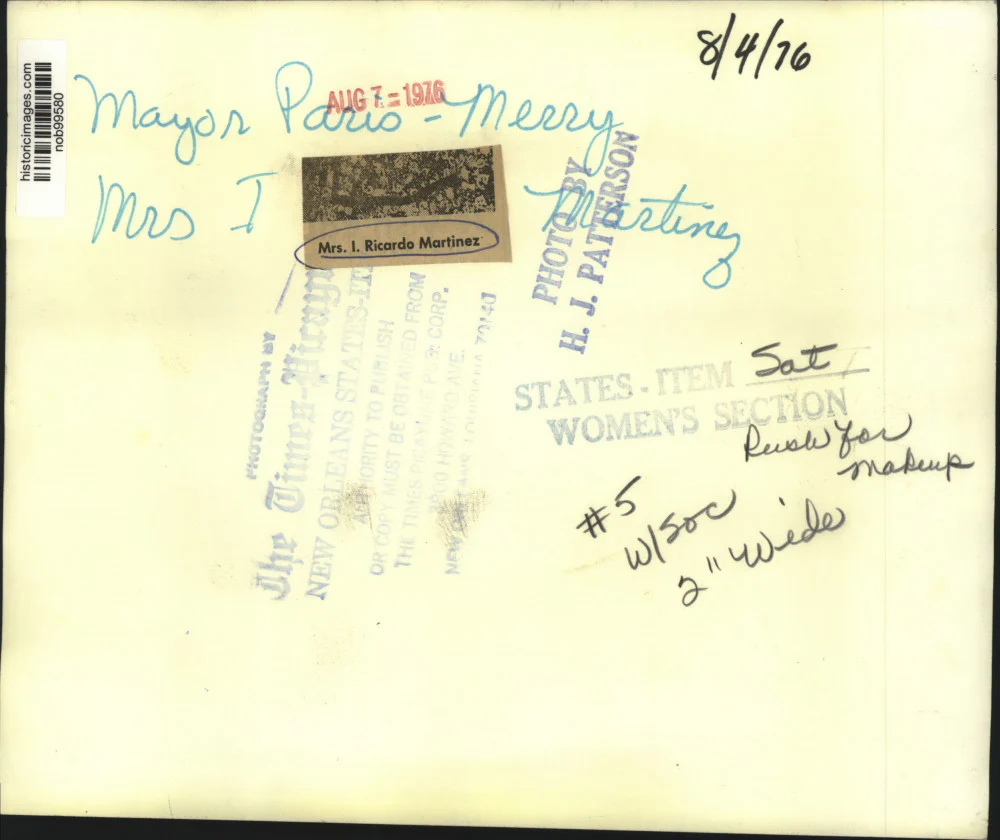 8/4/76
historicimages.com
nob99580
AUG 7 - 1976
Mayor Paris - Merry
Mrs I Martinez
Mrs. I. Ricardo Martinez
PHOTO BY
H. J. PATTERSON
PHOTOGRAPH BY
The Times-Picayune
NEW ORLEANS STATES-IT
AUTHORITY TO PUBLISH
OR COPY MUST BE OBTAINED FROM
THE TIMES PICAYUNE PUB. CORP.
3800 HOWARD AVE.
NEW ORLEANS, LOUISIANA 70140
STATES-ITEM Sat
WOMEN'S SECTION
Rush for
Makeup
#5
W/Soc
2" Wide